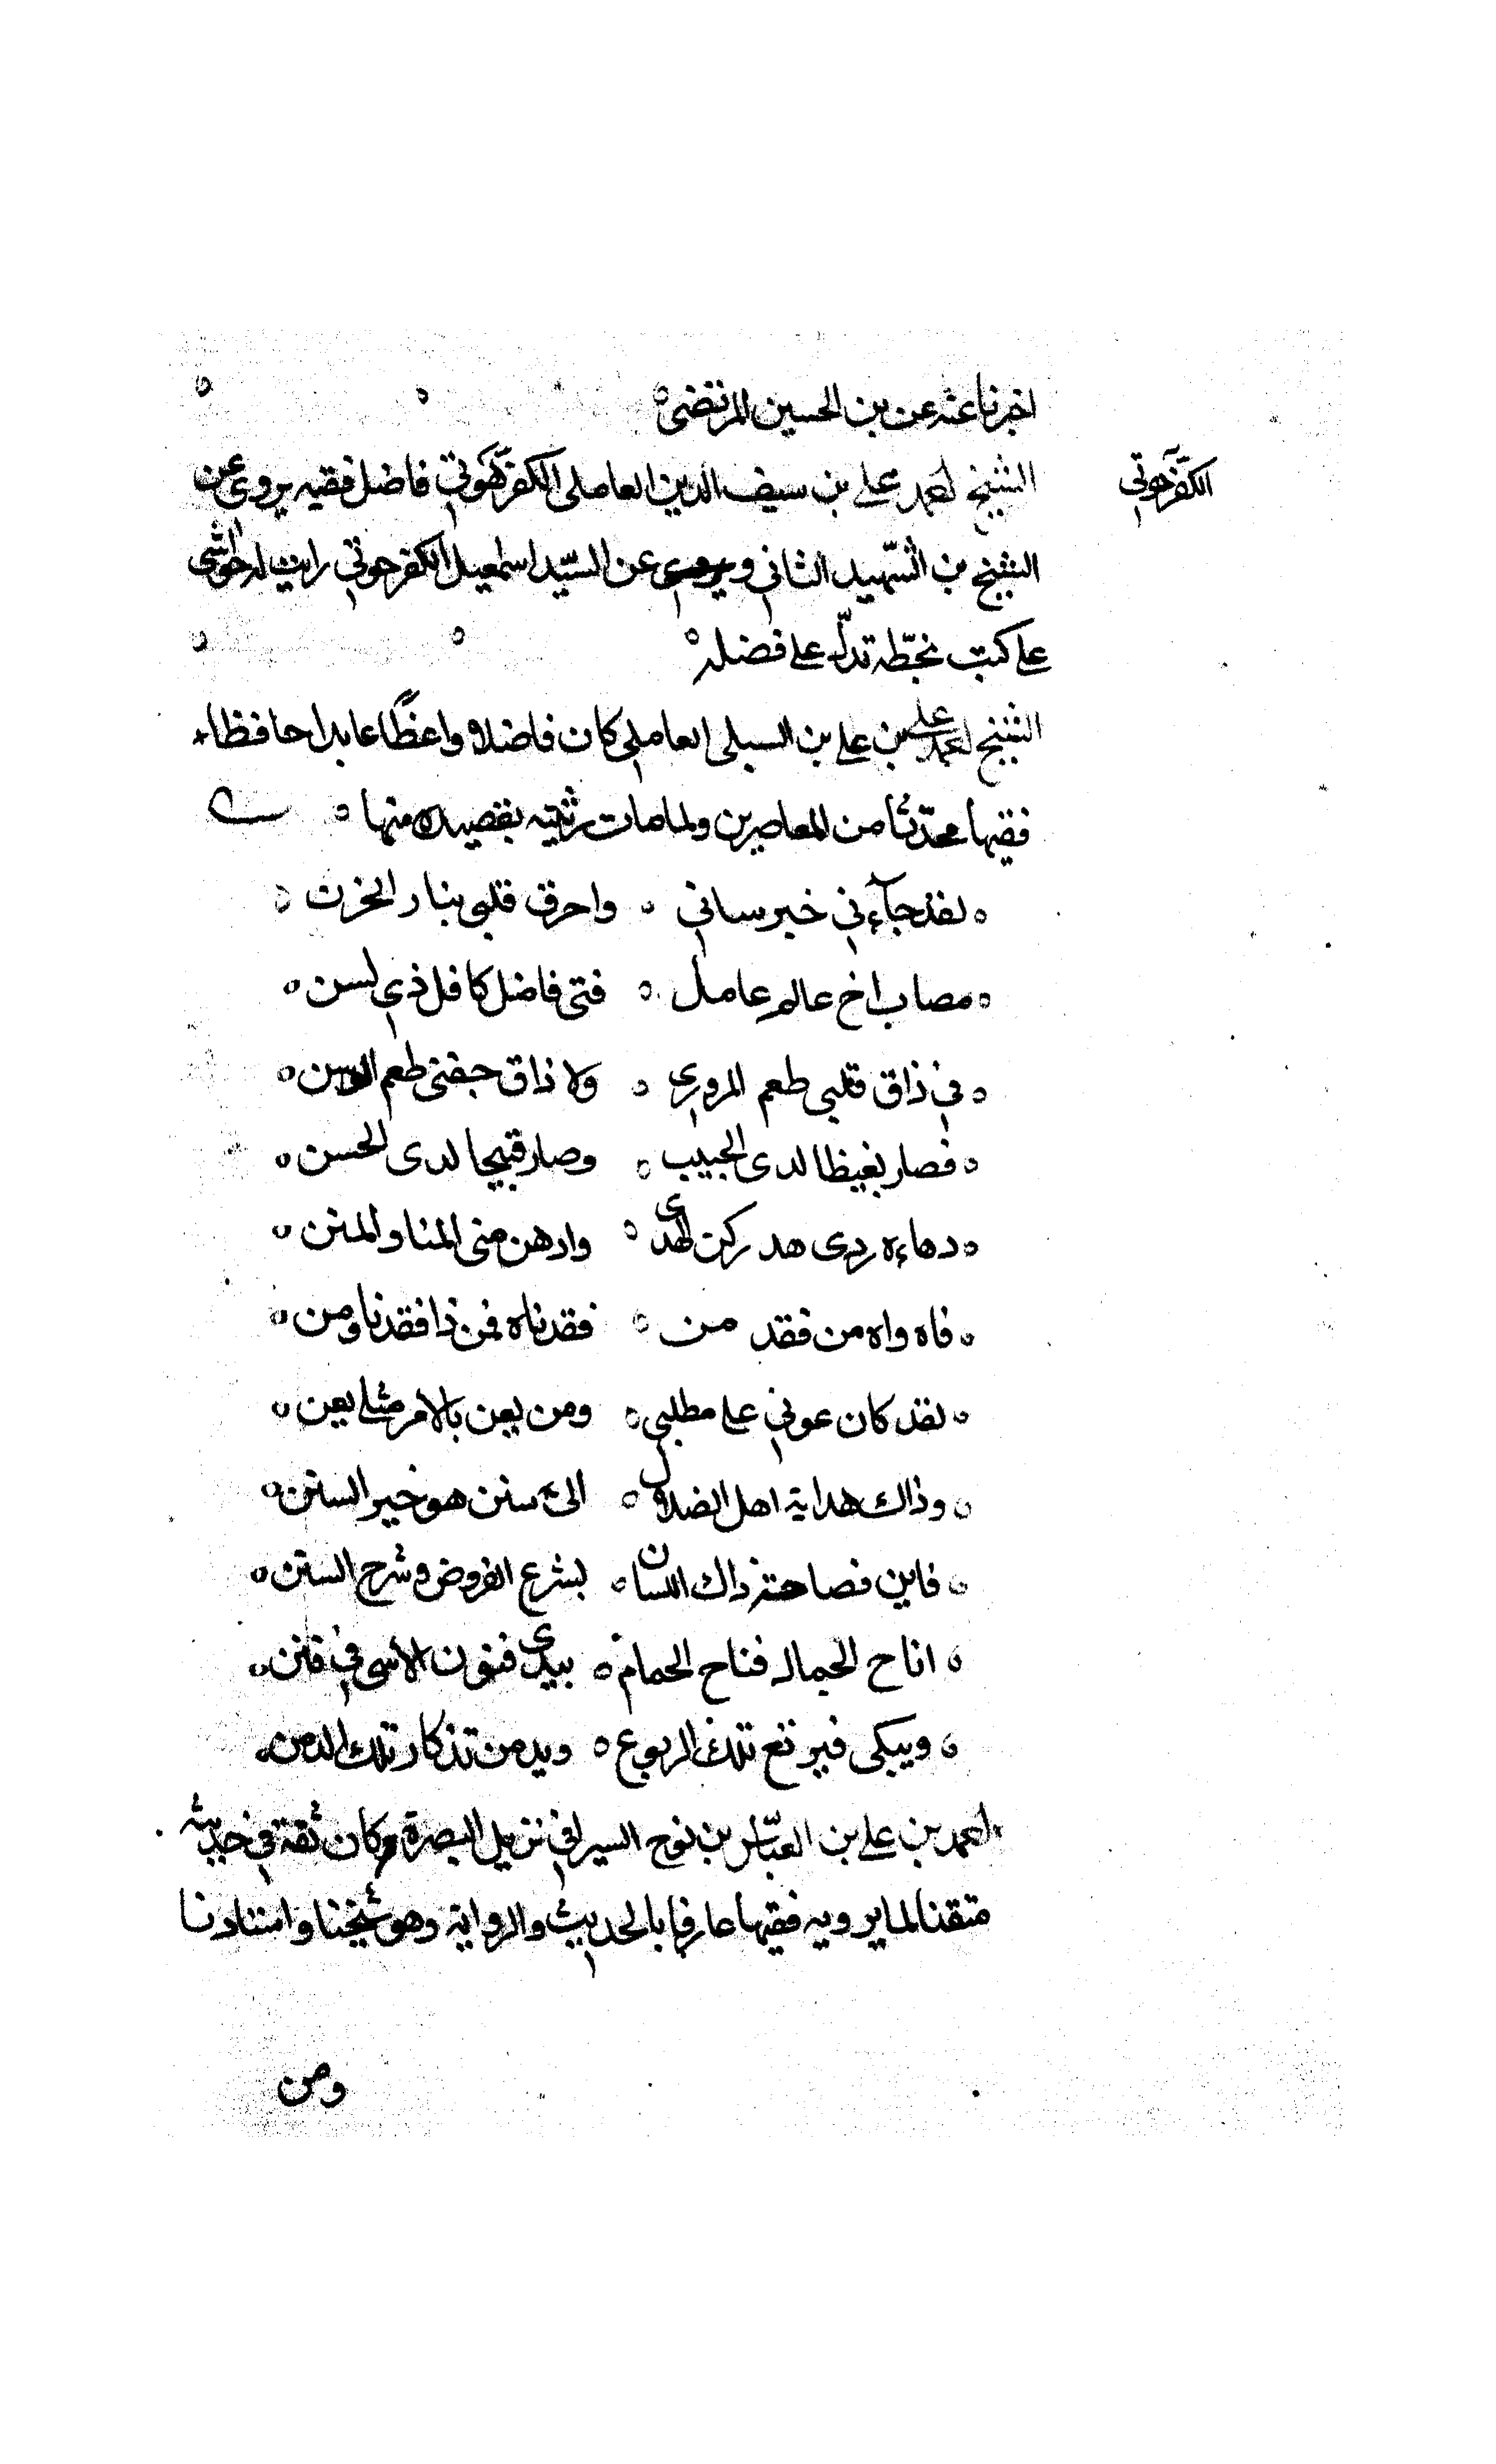 اخبرنا عنه عن بن الحسين المرتضى
الشيخ احمد على بن سيف الدين العاملى الكفرهوني فاضل فقيه يروى عن
الكفرحوني
الشيخ بن الشهيد الثاني ويروى عن السيد اسمعيل الكفرحوني رايت له حواشى
على كتب بخطه تدل على فضله
الشيخ احمد بن على بن السبلى العاملي كان فاضلا واعظا عابدا حافظا
فقيها محدثا من المعاصرين ولما مات رثيته بقصيدة منها
لقد جآءني خبر سائني واحرق قلبي بنار الحزن
مصاب اخ عالم عامل فتى فاضل كافل ذي لسن
في ذاق قلبي طعم المروري ولا ذاق جفني طعم الوسن
فصار بغيظا لدى الحبيب وصار قبيحا لدى الحسن
دهاءه ردى هد ركن الهدى وادهن منى المنا والمنن
فاه واه من فقد من فقدناه فمن ذا فقدنا ومن
لقد كان عوني على مطلبي ومن يعن بالامر مثلى يعن
وذاك هداية اهل الضلال الى سنن هو خير السنن
فاين فصاحة ذاك اللسان بشرع الفروض وشرح السنن
اناح الجمال فناح الحمام يبدى فنون الاسى في فنن
ويبكى فيرتع تلك الربوع ويدمن تذكار تلك الدمن
احمد بن على بن العباس بن نوح السيرافي نزيل البصرة وكان ثقة في حديثه
متقنا لما يرويه فقيها عارفا بالحديث والرواية وهو شيخنا واستادنا
ومن